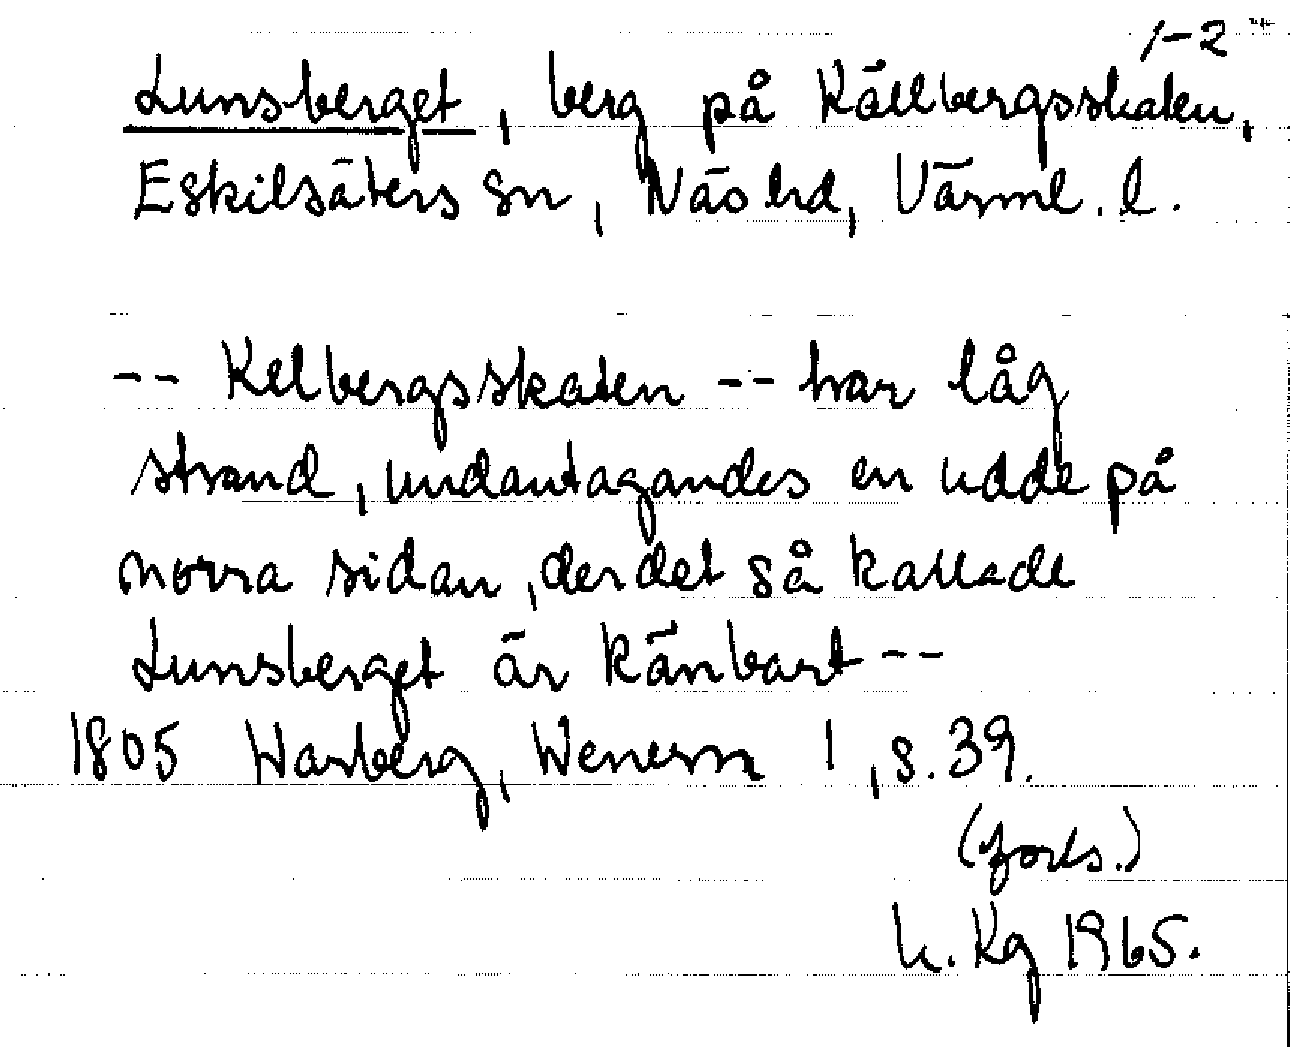 1-2
Lunsberget, berg på Källbergsskaten,
Eskilsäters sn, Näs hd, Värml. l.
-- Kelbergsskaten -- har låg
strand, undantagandes en udde på
norra sidan, der det så kallade
Lunsberget är känbart --
1805 Warberg, Wenern 1, s. 39.
(forts.)
h. Kg 1965.